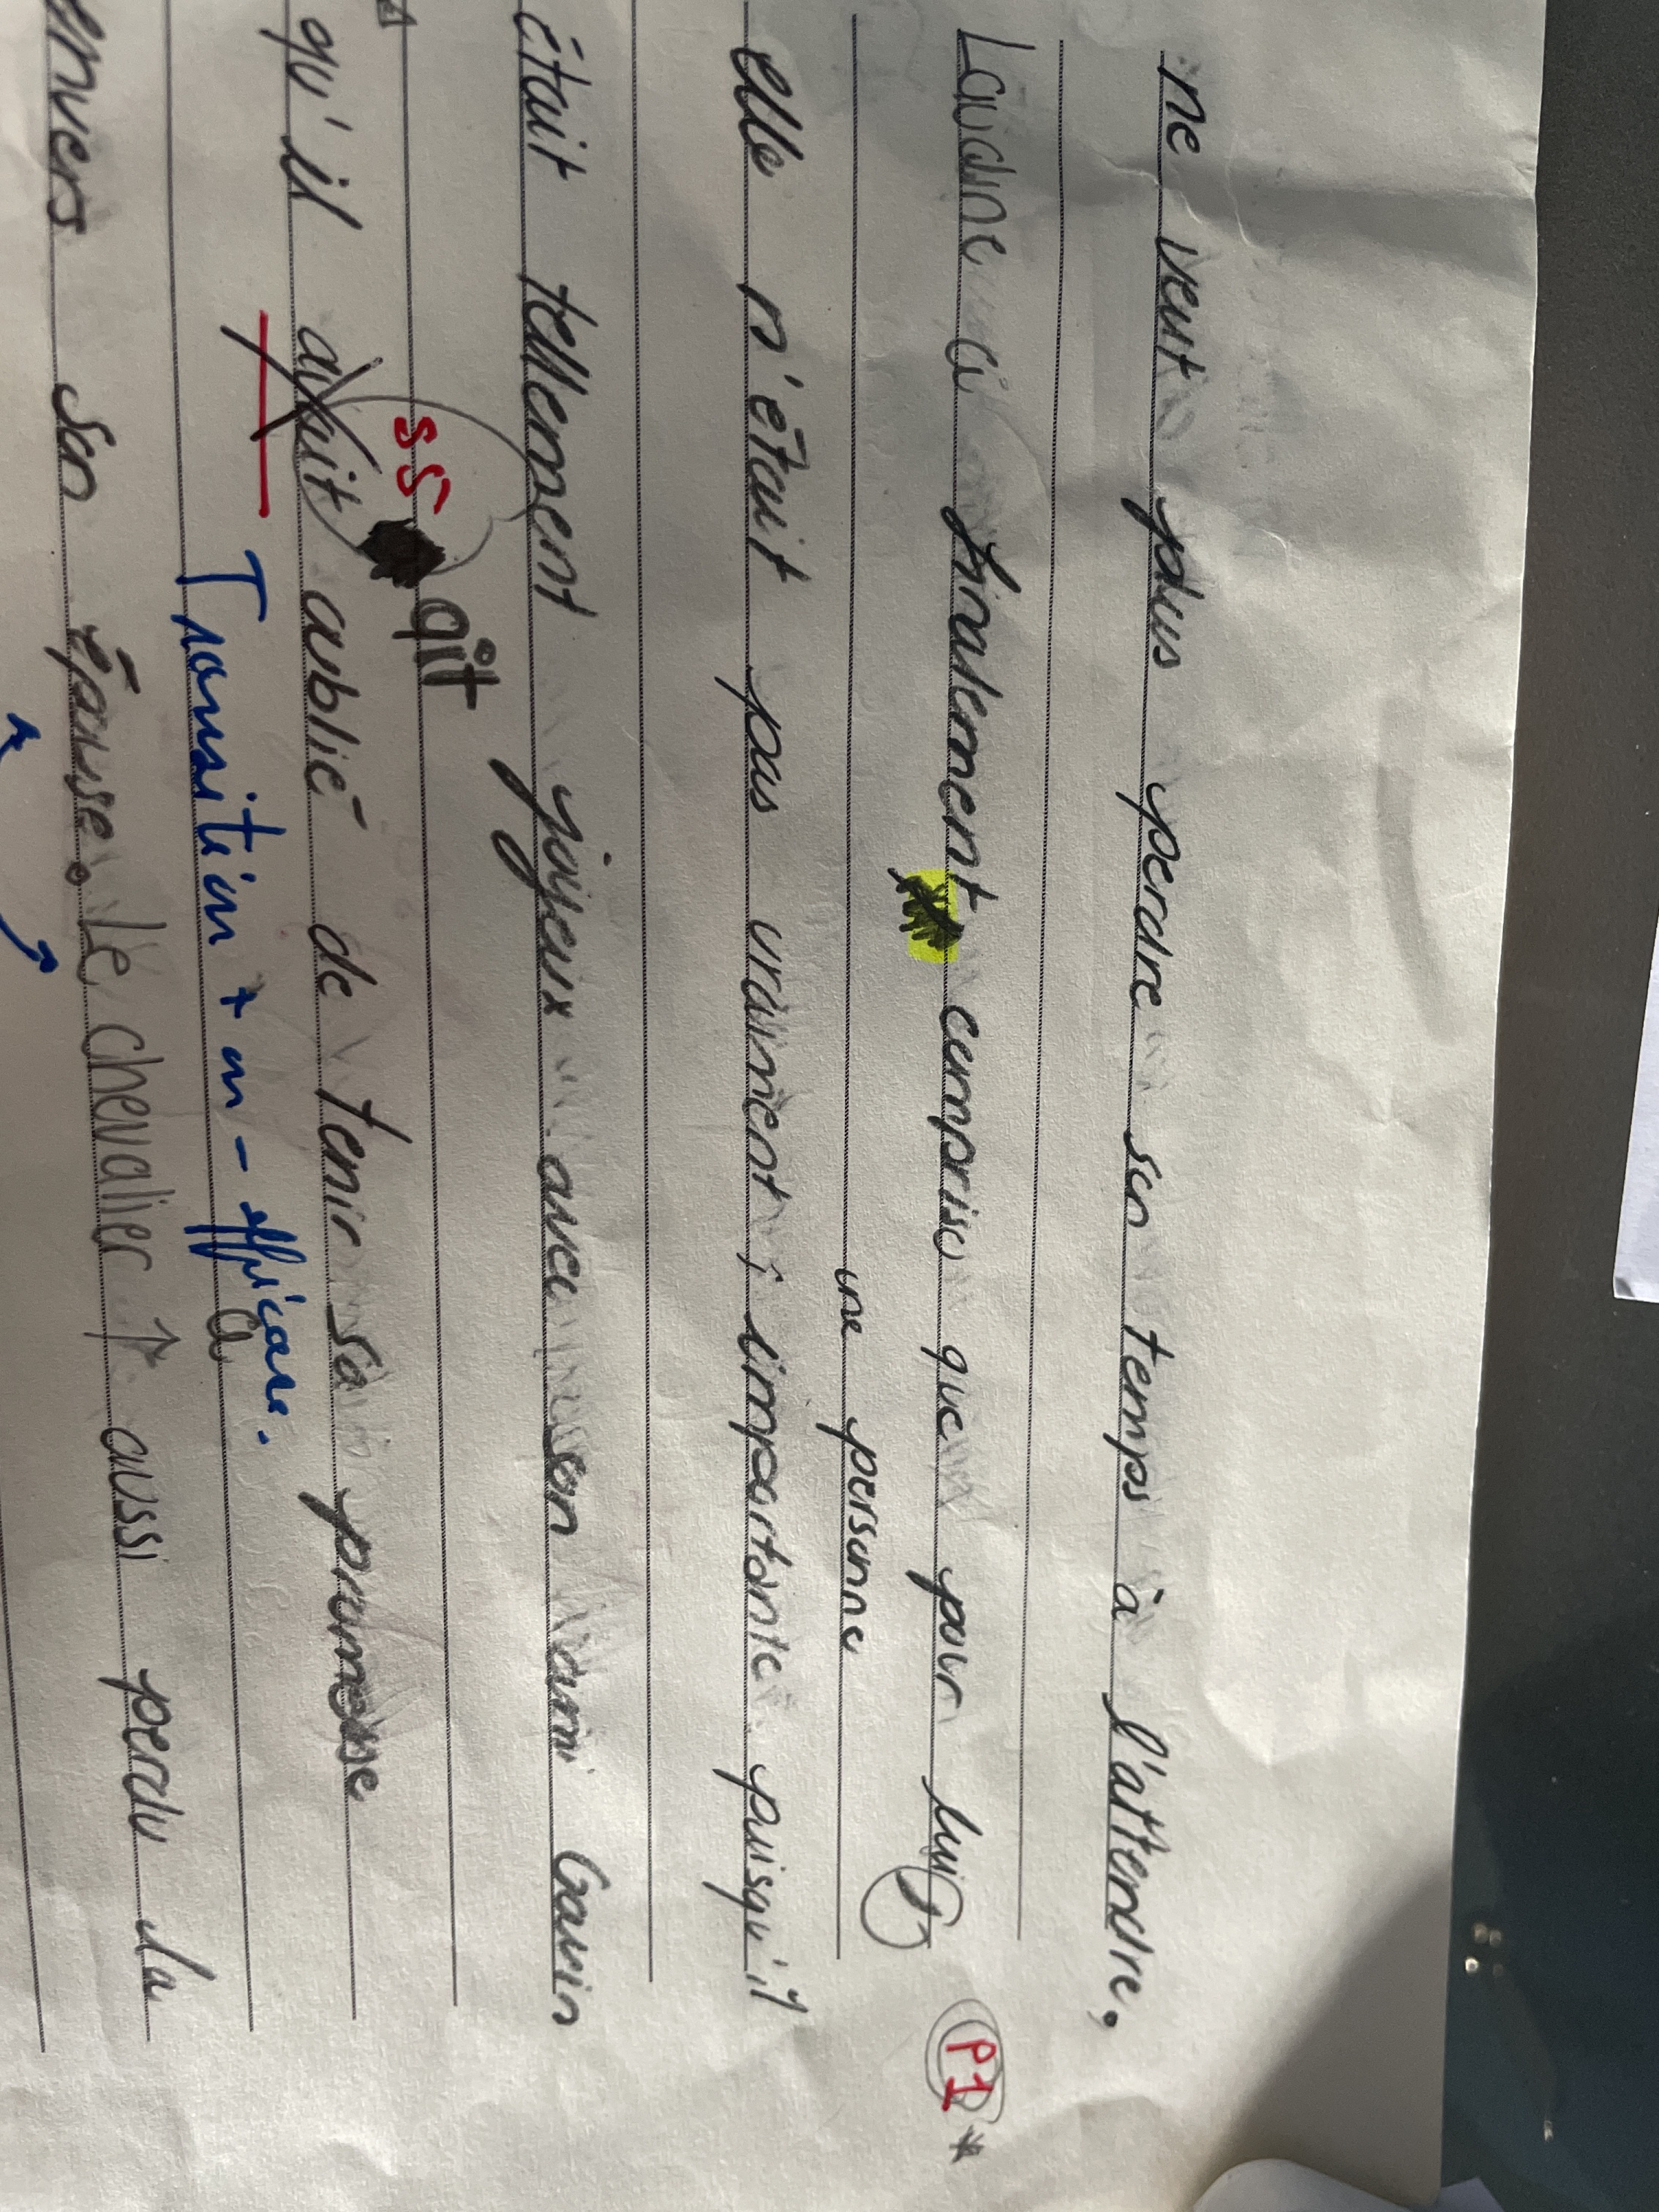 ne veut plus perdre son temps à l'attendre.
Laudine a finalement compris que pour lui, P1 *
une personne
elle n'était pas vraiment importante puisqu'il
était tellement joyeux avec son ami Gauvin
ss ait
qu'il avait oublié de tenir sa promesse
Transition + ou - efficace.
a
envers son épouse. Le chevalier ↑ aussi perdu la